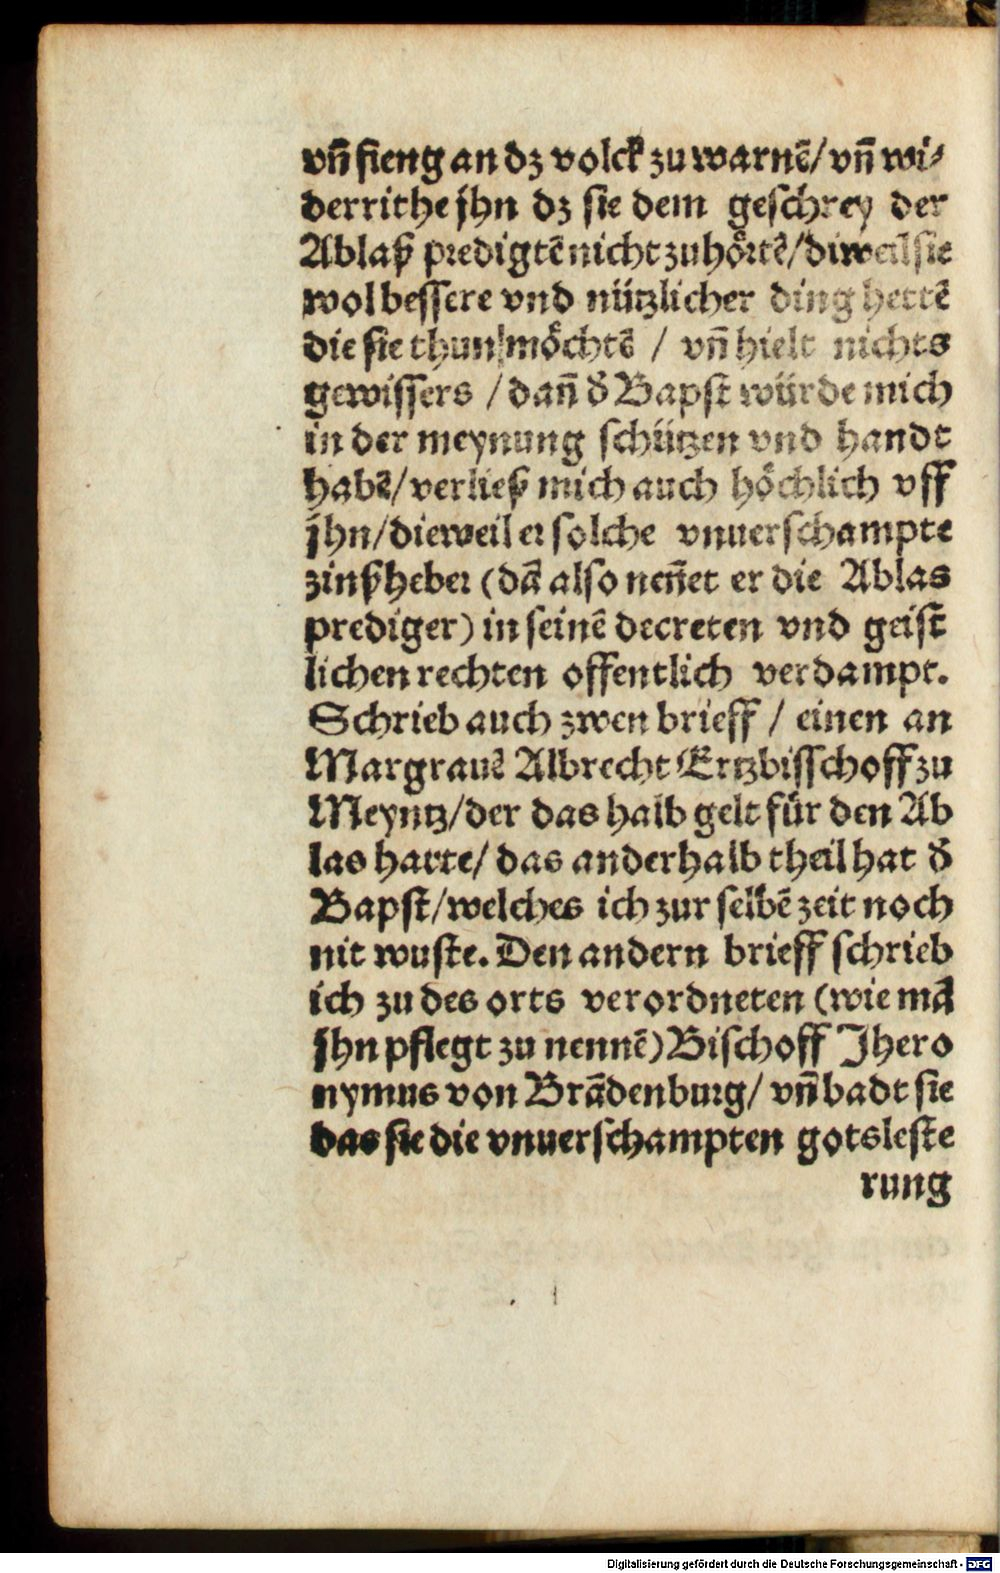 vñ fieng an dz volck zu warnẽ/ vñ wi⸗
derrithe jhn dz sie dem geschrey der
Ablaß predigtẽ nicht zuhoͤrtẽ/ diweil sie
wol bessere vnd nützlicher ding hettẽ
die sie thun moͤchtẽ / vñ hielt nichts
gewissers / dañ d̕ Bapst würde mich
in der meynung schützen vnd handt
habẽ/ verließ mich auch hoͤchlich vff
jhn/ dieweil er solche vnuerschampte
zinßheber (dã also neñet er die Ablas
prediger) in seinẽ decreten vnd geist
lichen rechten offentlich verdampt.
Schrieb auch zwen brieff / einen an
Margrauẽ Albrecht Ertzbisschoff zu
Meyntz/ der das halb gelt für den Ab
las hatte/ das anderhalb theil hat d̕
Bapst/ welches ich zur selbẽ zeit noch
nit wuste. Den andern brieff schrieb
ich zu des orts verordneten (wie mã
jhn pflegt zu nennẽ) Bischoff Jhero
nymus von Brãdenburg/ vñ badt sie
das sie die vnuerschampten gotsleste
rung
Digitalisierung gefördert durch die Deutsche Forschungsgemeinschaft - DFG